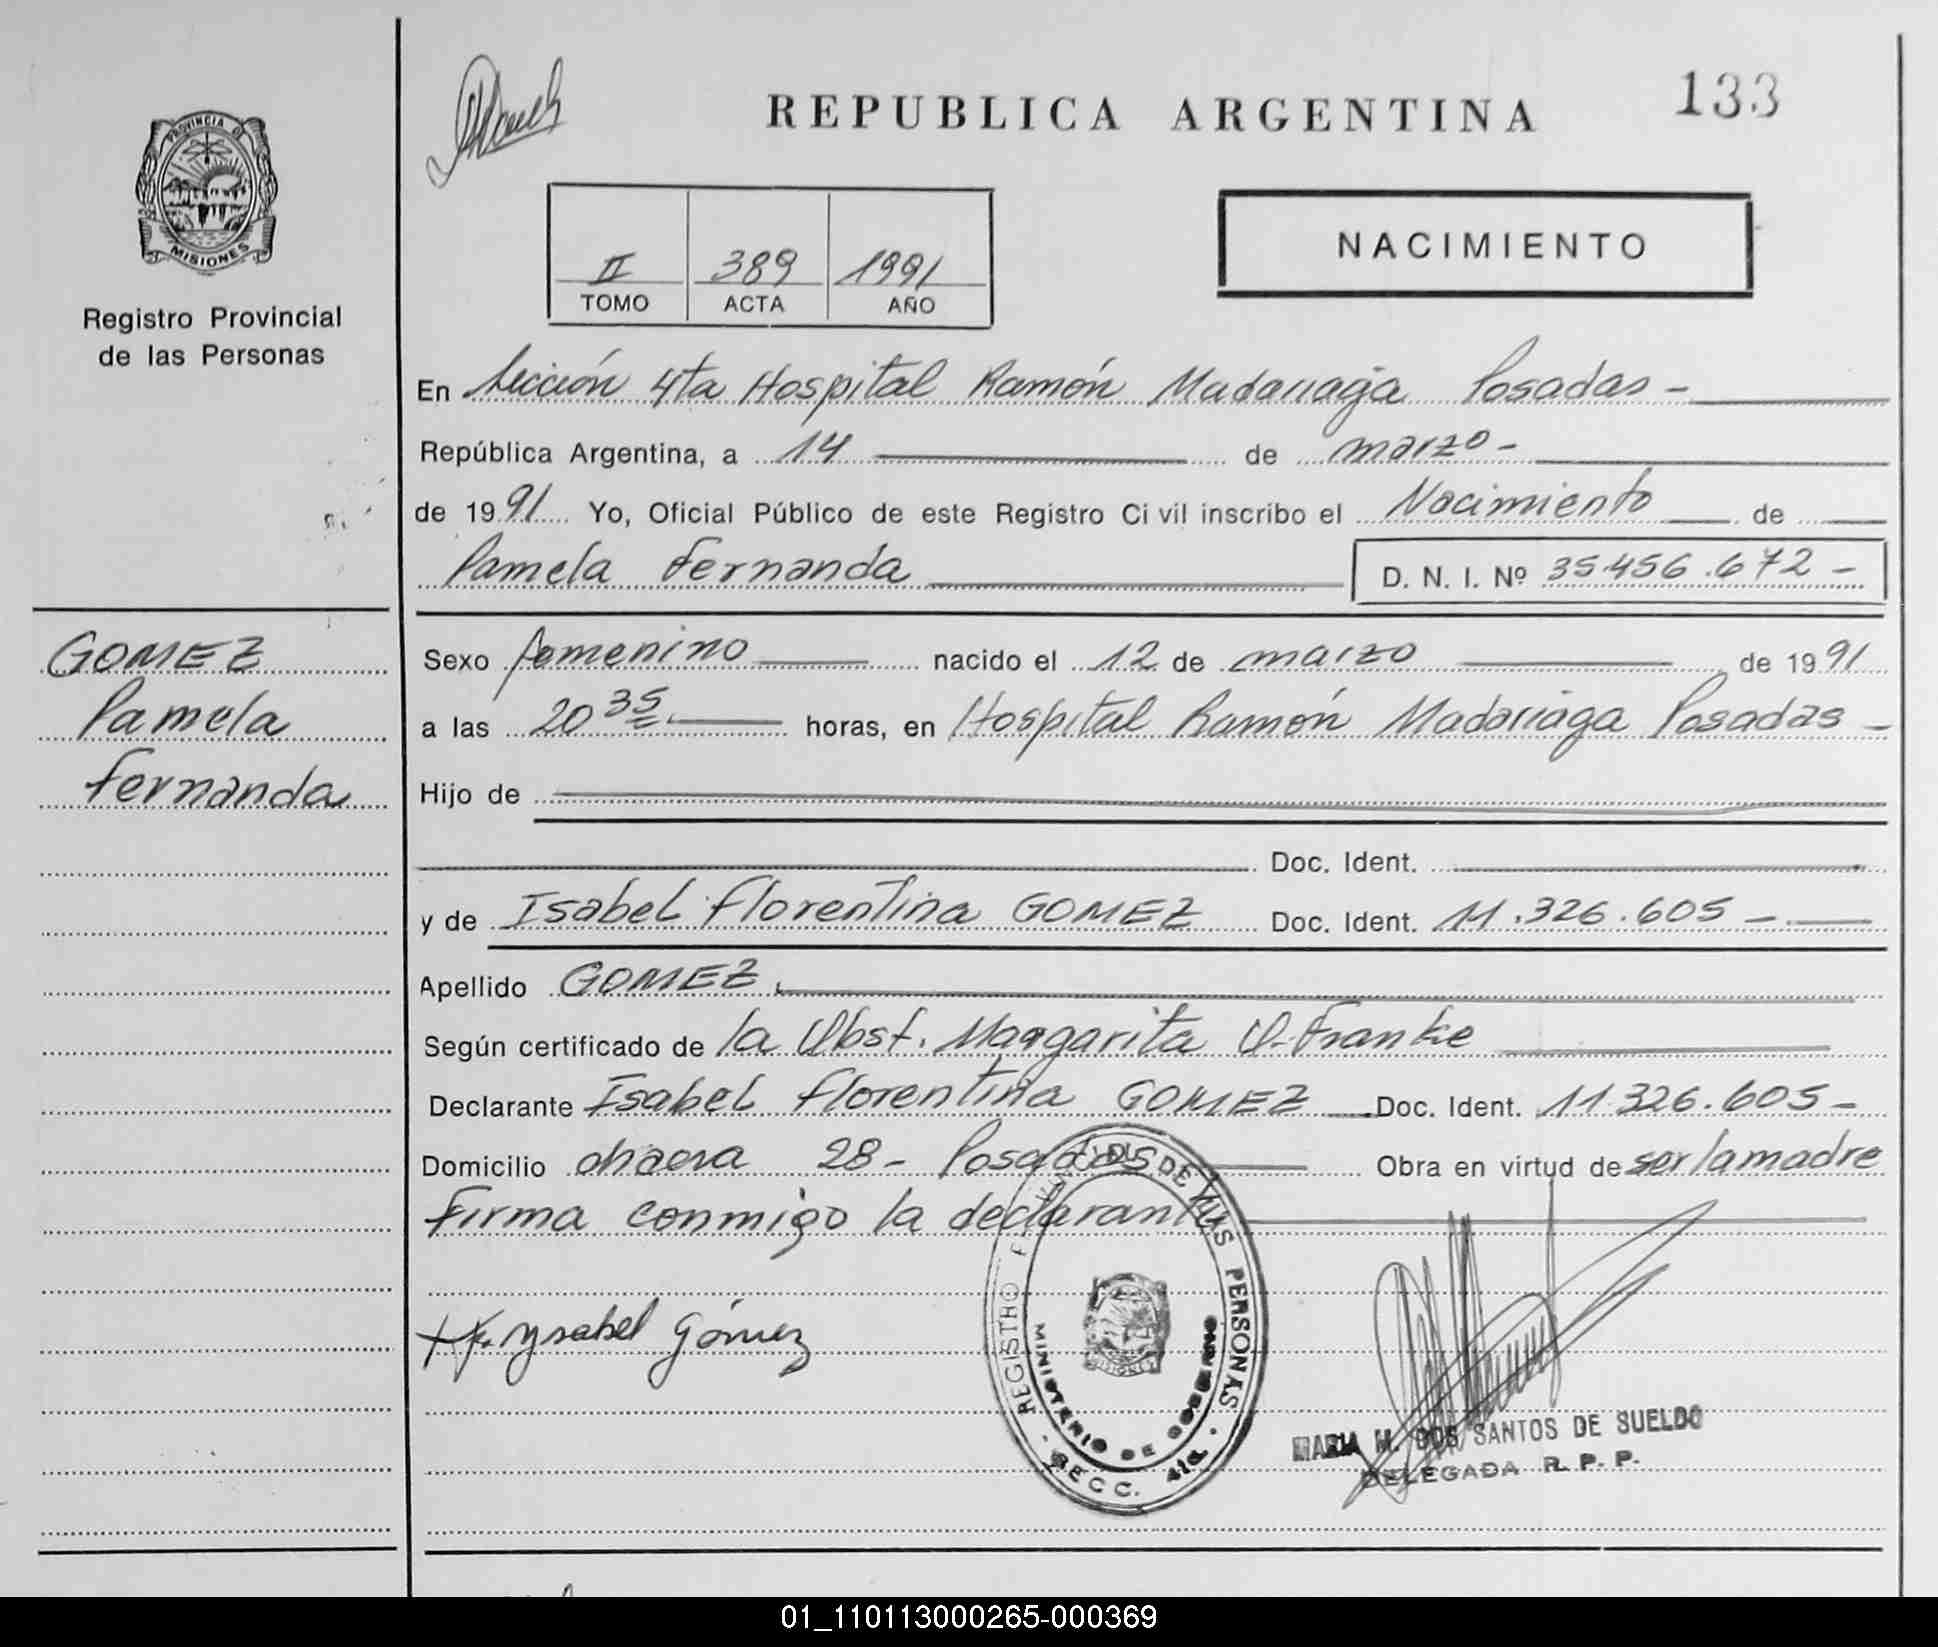 133
REPUBLICA ARGENTINA
PROVINCIA DE
MISIONES
Registro Provincial
de las Personas
II 389 1991
TOMO ACTA AÑO
NACIMIENTO
En Sección 4ta Hospital Ramón Madariaga Posadas -
República Argentina, a 14 de marzo -
de 1991 Yo, Oficial Público de este Registro Civil inscribo el Nacimiento de
Pamela Fernanda D. N. I. Nº 35.456.672 -
GOMEZ
Pamela
Fernanda
Sexo femenino nacido el 12 de marzo de 1991
a las 20 35 horas, en Hospital Ramón Madariaga Posadas -
Hijo de
Doc. Ident.
y de Isabel Florentina GOMEZ Doc. Ident. 11.326.605 -
Apellido GOMEZ
Según certificado de la Obst. Margarita O. Franke
Declarante Isabel Florentina GOMEZ Doc. Ident. 11.326.605 -
Domicilio chacra 28 - Posadas Obra en virtud de ser la madre
Firma conmigo la declarante
Ysabel Gómez
REGISTRO DE LAS PERSONAS
MINISTERIO DE GOBIERNO
SECC. 4ta.
MARIA M. DOS SANTOS DE SUELDO
DELEGADA R. P. P.
01_110113000265-000369